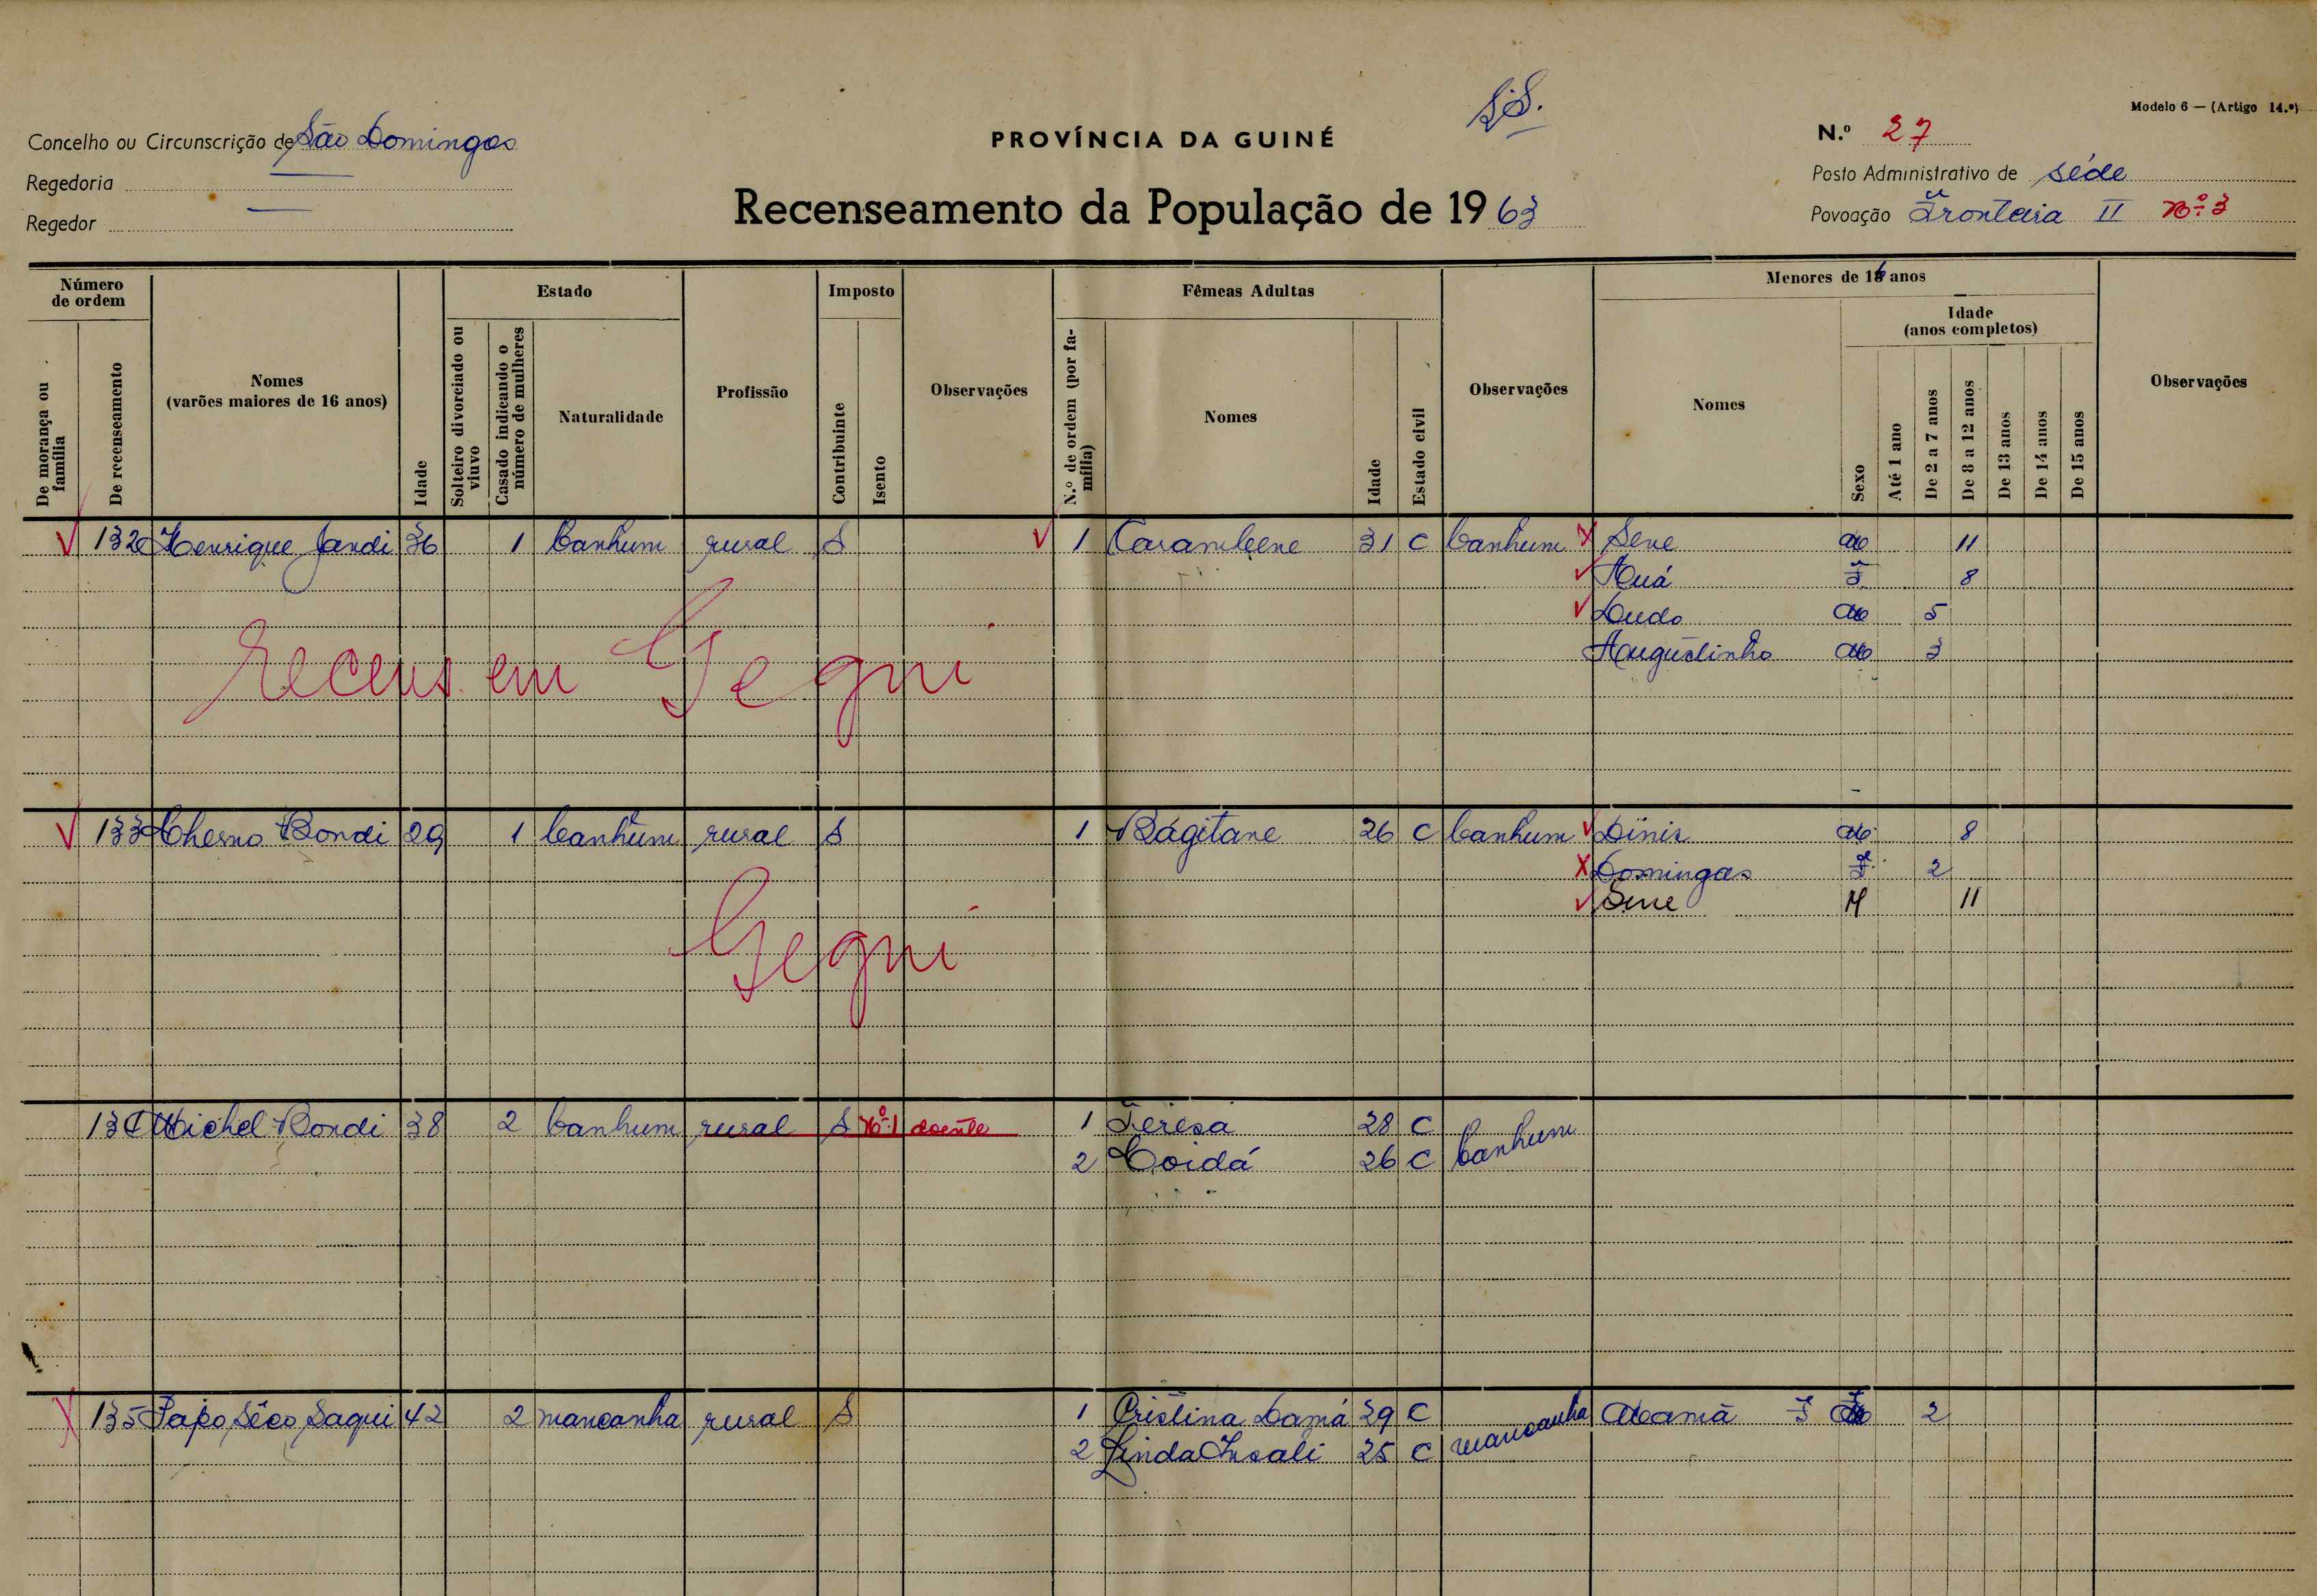 S.S.
Modelo 6 — (Artigo 14.º)
Concelho ou Circunscrição de São Domingos
PROVÍNCIA DA GUINÉ
N.º 27
Regedoria —
Posto Administrativo de séde
Regedor —
Recenseamento da População de 1963
Povoação Fronteira II Nº 3
Número de ordem
Estado
Imposto
Fêmeas Adultas
Menores de 16 anos
Idade (anos completos)
De morança ou família
De recenseamento
Nomes (varões maiores de 16 anos)
Idade
Solteiro divorciado ou viuvo
Casado indicando o número de mulheres
Naturalidade
Profissão
Contribuinte
Isento
Observações
N.º de ordem (por família)
Nomes
Idade
Estado civil
Observações
Nomes
Sexo
Até 1 ano
De 2 a 7 anos
De 8 a 12 anos
De 13 anos
De 14 anos
De 15 anos
Observações
132 Henrique Jandi 36 1 banhum rural S 1 Carambene 31 C banhum Sene M 11
Auá F 8
Dudo M 5
Augustinho M 3
recens. em Gegui
133 Cherno Bondi 29 1 banhum rural S 1 Bágitane 26 C banhum Dinis M 8
Domingas F 2
Sene M 11
Gegui
134 Michel Bondi 38 2 banhum rural S Nº 1 doente 1 Teresa 28 C banhum
2 Coidá 26 C
135 Papo Sêco Saqui 42 2 mancanha rural S 1 Cristina Damá 29 C mancanha Mamã F 2
2 Linda Insali 25 C